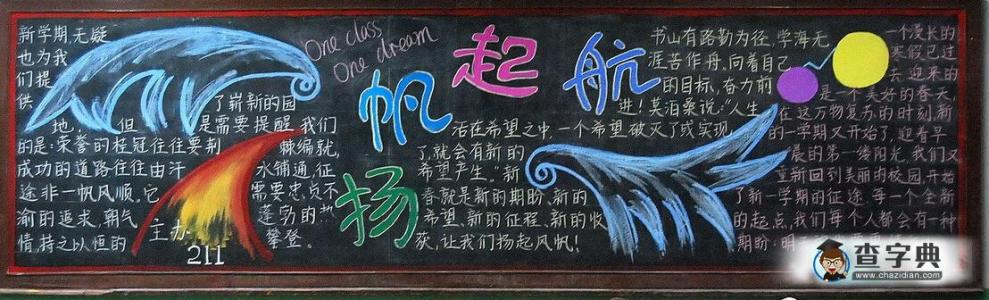 新学期,无疑
也为我
们提
供
了崭新的园
地,但是需要提醒我们
的是:荣誉的桂冠往往要荆棘编就,
成功的道路往往由汗水铺通,征
途非一帆风顺,它需要忠贞不
渝的追求,朝气蓬勃的
情,持之以恒的攀登。
主办
211
One class
One dream
扬帆起航
书山有路勤为径,学海无
涯苦作舟,向着自己
的目标,奋力前
进!莫泊桑说:"人生
活在希望之中,一个希望破灭了或实现
了,就会有新的
希望产生。"新
春就是新的期盼、新的
希望、新的征程、新的收
获,让我们扬起风帆!
一个漫长的
寒假已过
去,迎来的
是一个美好的春天,
在这万物复苏的时刻,新
的一学期又开始了,迎着早
晨的第一缕阳光,我们又
重新回到美丽的校园,开始
了新一学期的征途,每一个全新
的起点,我们每个人都会有一种
期盼:明
查字典
www.chazidian.com